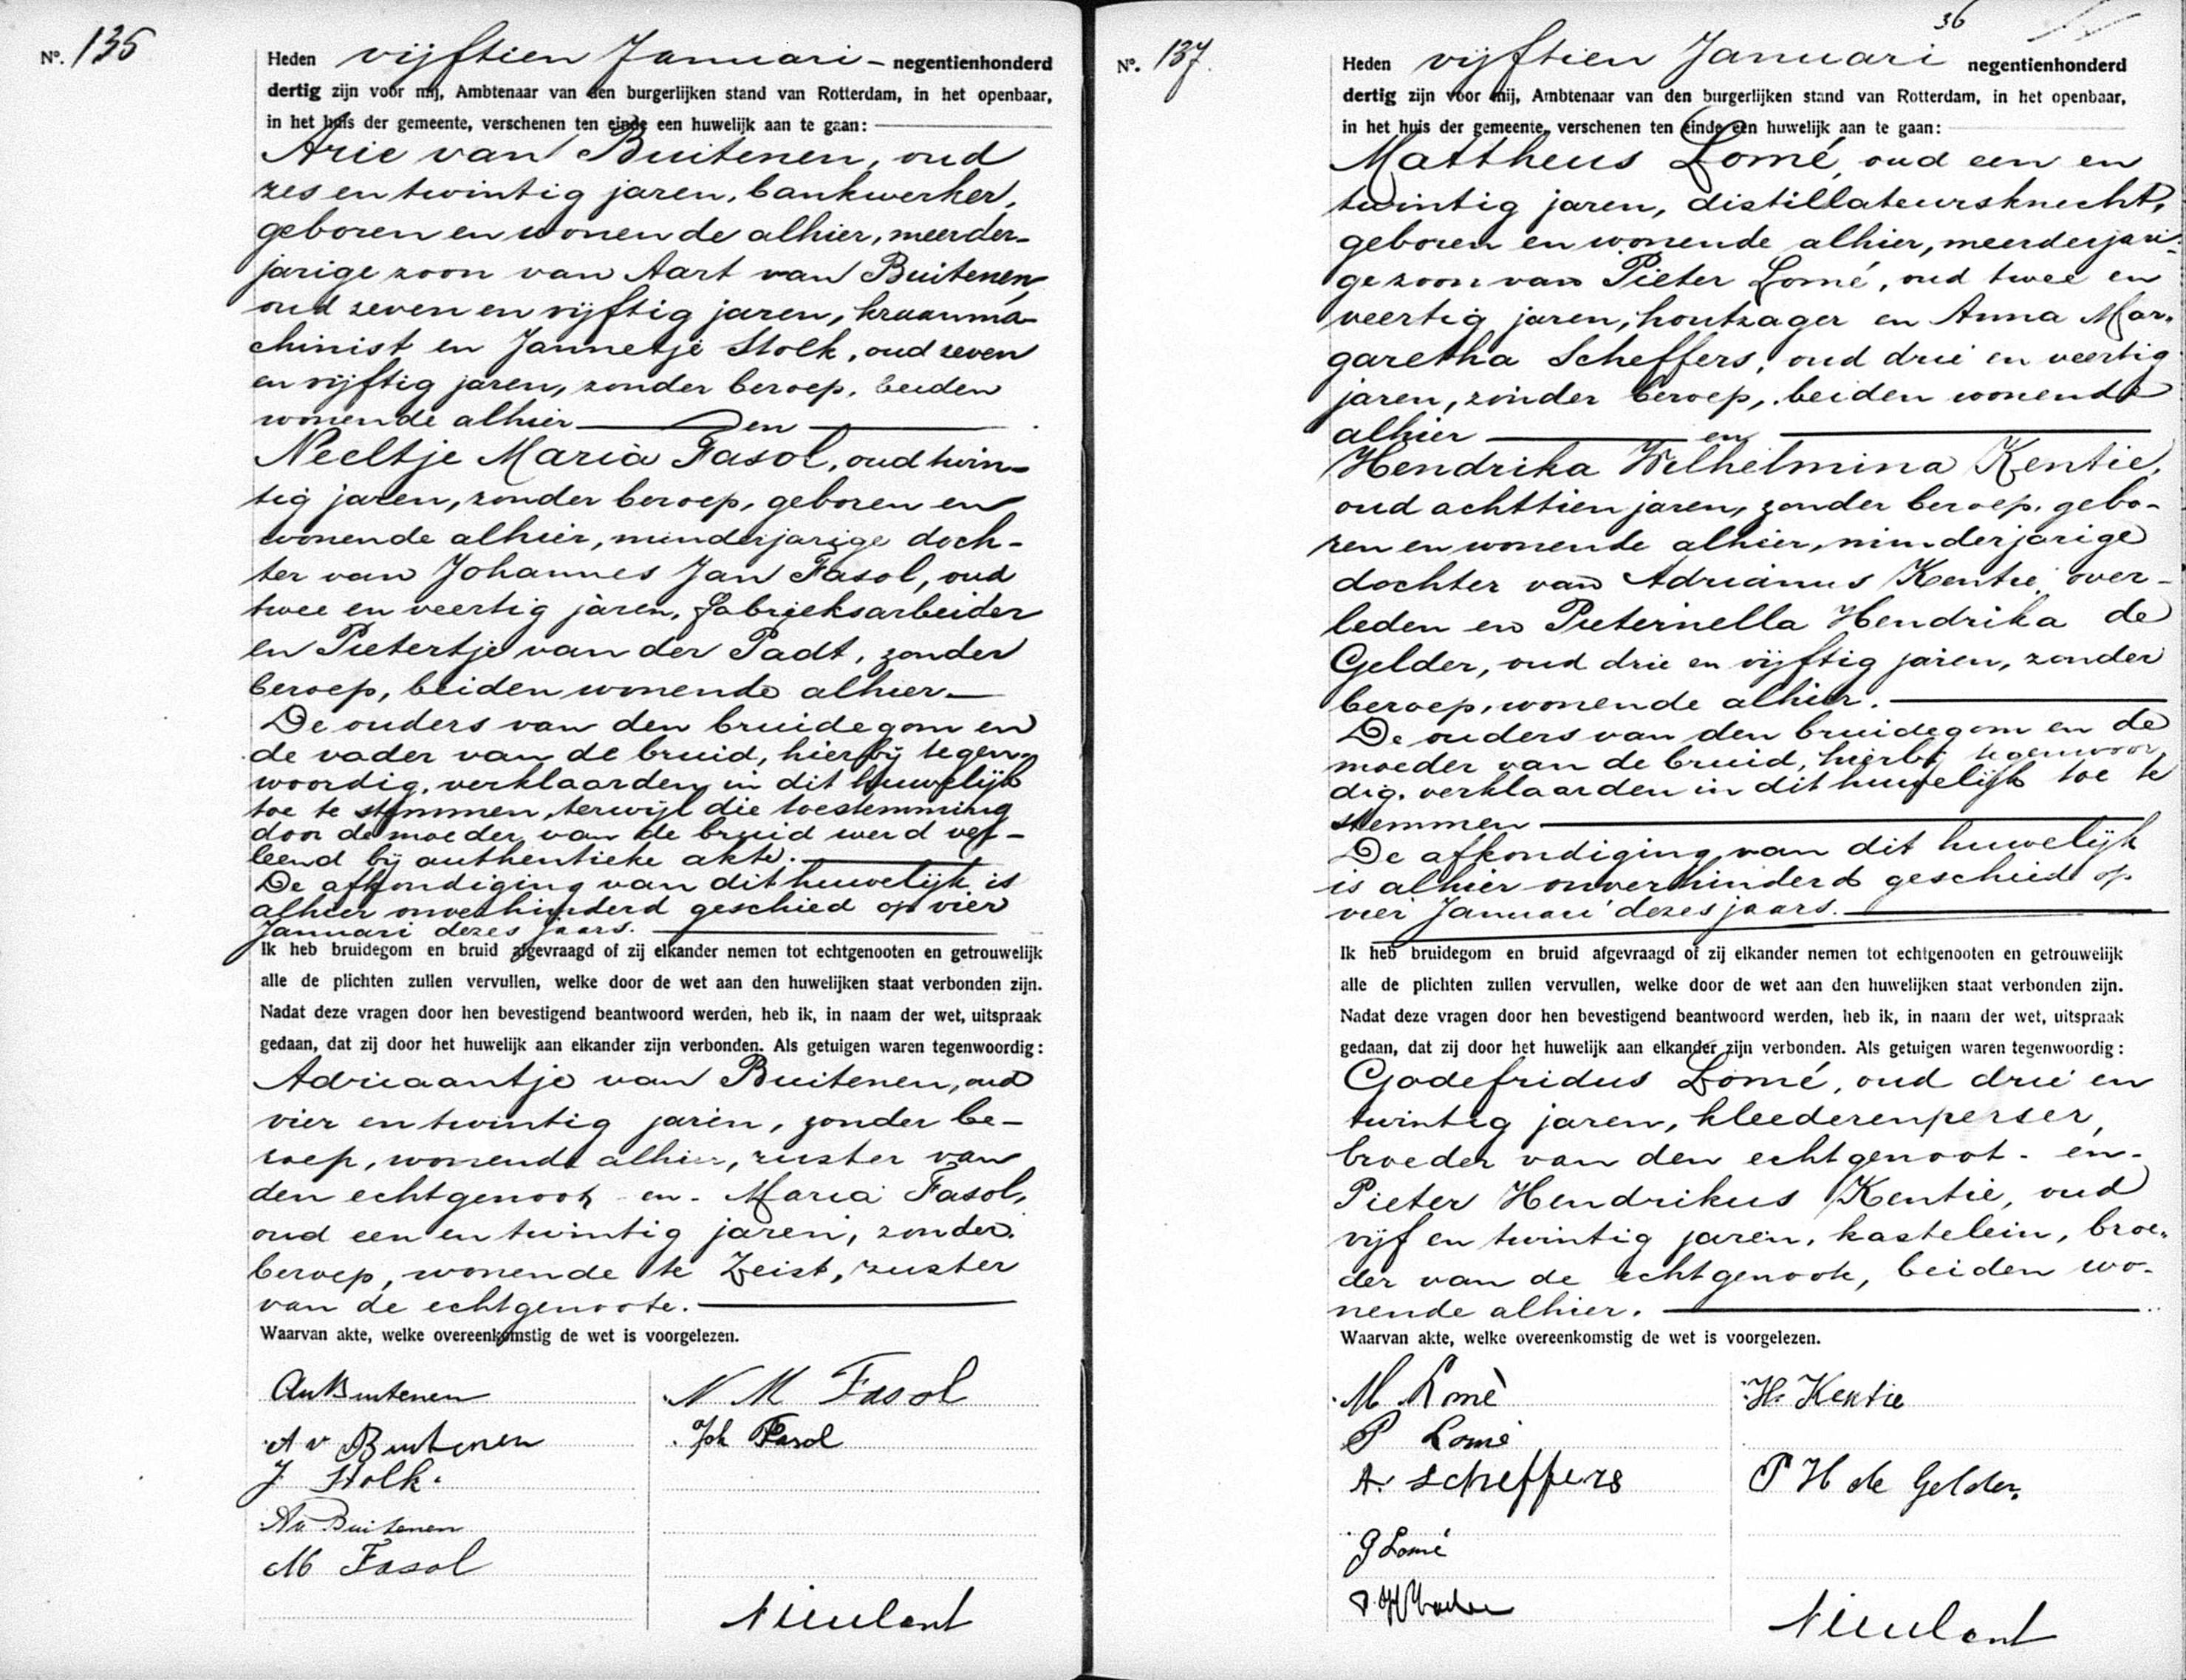 Nº. 135
Heden vijftien Januari - negentienhonderd
dertig zijn voor mij, Ambtenaar van den burgerlijken stand van Rotterdam, in het openbaar,
in het huis der gemeente, verschenen ten einde een huwelijk aan te gaan:
Arie van Buitenen, oud
zes en twintig jaren, bankwerker,
geboren en wonende alhier, meerder-
jarige zoon van Aart van Buitenen,
oud zeven en vijftig jaren, kraanma-
chinist en Jannetje Stolk, oud zeven
en vijftig jaren, zonder beroep, beiden
wonende alhier en
Neeltje Maria Fasol, oud twin-
tig jaren, zonder beroep, geboren en
wonende alhier, minderjarige doch-
ter van Johannes Jan Fasol, oud
twee en veertig jaren, fabrieksarbeider
en Pietertje van der Padt, zonder
beroep, beiden wonende alhier.
De ouders van den bruidegom en
de vader van de bruid, hierbij tegen-
woordig, verklaarden in dit huwelijk
toe te stemmen, terwijl die toestemming
door de moeder van de bruid werd ver-
leend bij authentieke akte.
De afkondiging van dit huwelijk is
alhier onverhinderd geschied op vier
Januari dezes jaars.
Ik heb bruidegom en bruid afgevraagd of zij elkander nemen tot echtgenooten en getrouwelijk
alle de plichten zullen vervullen, welke door de wet aan den huwelijken staat verbonden zijn.
Nadat deze vragen door hen bevestigend beantwoord werden, heb ik, in naam der wet, uitspraak
gedaan, dat zij door het huwelijk aan elkander zijn verbonden. Als getuigen waren tegenwoordig:
Adriaantje van Buitenen, oud
vier en twintig jaren, zonder be-
roep, wonende alhier, zuster van
den echtgenoot en Maria Fasol,
oud een en twintig jaren, zonder
beroep, wonende te Zeist, zuster
van de echtgenoote.
Waarvan akte, welke overeenkomstig de wet is voorgelezen.
AvBuitenen
N M Fasol
A v Buitenen
Joh Fasol
J Stolk.
Av Buitenen
M Fasol
Nieulant
36
Nº. 137.
Heden vijftien Januari negentienhonderd
dertig zijn voor mij, Ambtenaar van den burgerlijken stand van Rotterdam, in het openbaar,
in het huis der gemeente, verschenen ten einde een huwelijk aan te gaan:
Mattheus Lomé, oud een en
twintig jaren, distillateursknecht,
geboren en wonende alhier, meerderjari-
ge zoon van Pieter Lomé, oud twee en
veertig jaren, houtzager en Anna Mar-
garetha Scheffers, oud drie en veertig
jaren, zonder beroep, beiden wonende
alhier en
Hendrika Wilhelmina Kentie,
oud achttien jaren, zonder beroep, gebo-
ren en wonende alhier, minderjarige
dochter van Adrianus Kentie, over-
leden en Pieternella Hendrika de
Gelder, oud drie en vijftig jaren, zonder
beroep, wonende alhier.
De ouders van den bruidegom en de
moeder van de bruid, hierbij tegenwoor-
dig, verklaarden in dit huwelijk toe te
stemmen
De afkondiging van dit huwelijk
is alhier onverhinderd geschied op
vier Januari dezes jaars.
Ik heb bruidegom en bruid afgevraagd of zij elkander nemen tot echtgenooten en getrouwelijk
alle de plichten zullen vervullen, welke door de wet aan den huwelijken staat verbonden zijn.
Nadat deze vragen door hen bevestigend beantwoord werden, heb ik, in naam der wet, uitspraak
gedaan, dat zij door het huwelijk aan elkander zijn verbonden. Als getuigen waren tegenwoordig:
Godefridus Lomé, oud drie en
twintig jaren, kleederenperser,
broeder van den echtgenoot - en -
Pieter Hendrikus Kentie, oud
vijf en twintig jaren, kastelein, broe-
der van de echtgenoote, beiden wo-
nende alhier.
Waarvan akte, welke overeenkomstig de wet is voorgelezen.
M Lomè
H. Kentie
P Lomé
A. Scheffers
P H de Gelder.
G Lomé
Nieulant